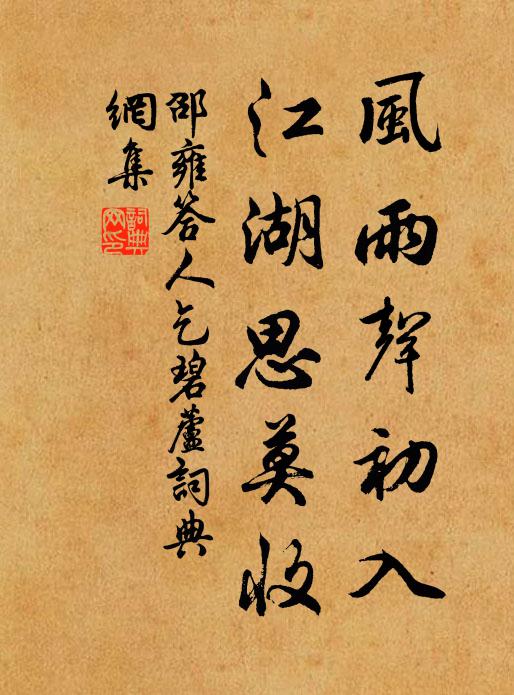 風雨聲初入
江湖思莫收
邵雍答人乞碧蘆詞典
網集
詞典網印